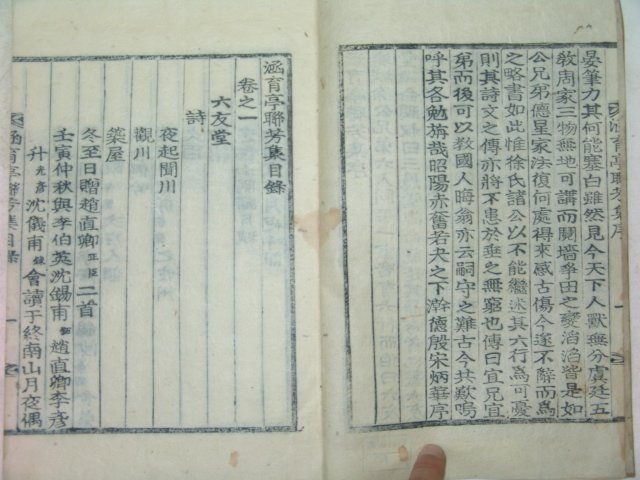 晏筆力其何能塞白雖然見今天下人獸無分虞廷五
敎周家三物無地可講而鬩墻爭田之變滔滔皆是如
公兄弟德星家法復何處得來感古傷今遂不辭而爲
之略書如此惟徐氏諸公以不能繼述其六行爲可憂
則其詩文之傳亦將不患於垂之無窮也傳曰宜兄宜
弟而後可以敎國人晦翁亦云嗣守之難古今共歎嗚
呼其各勉旃哉昭陽赤奮若夬之下澣德殷宋炳華序
涵育亭聯芳集序
涵育亭聯芳集目錄
卷之一
六友堂
詩
夜起聞川
觀川
築屋
冬至日贈趙直卿正臣二首
壬寅仲秋與李伯英沈錫甫趙直卿李彦
升光彦沈儀甫會讀于終南山月夜偶
涵育亭聯芳集目錄
一